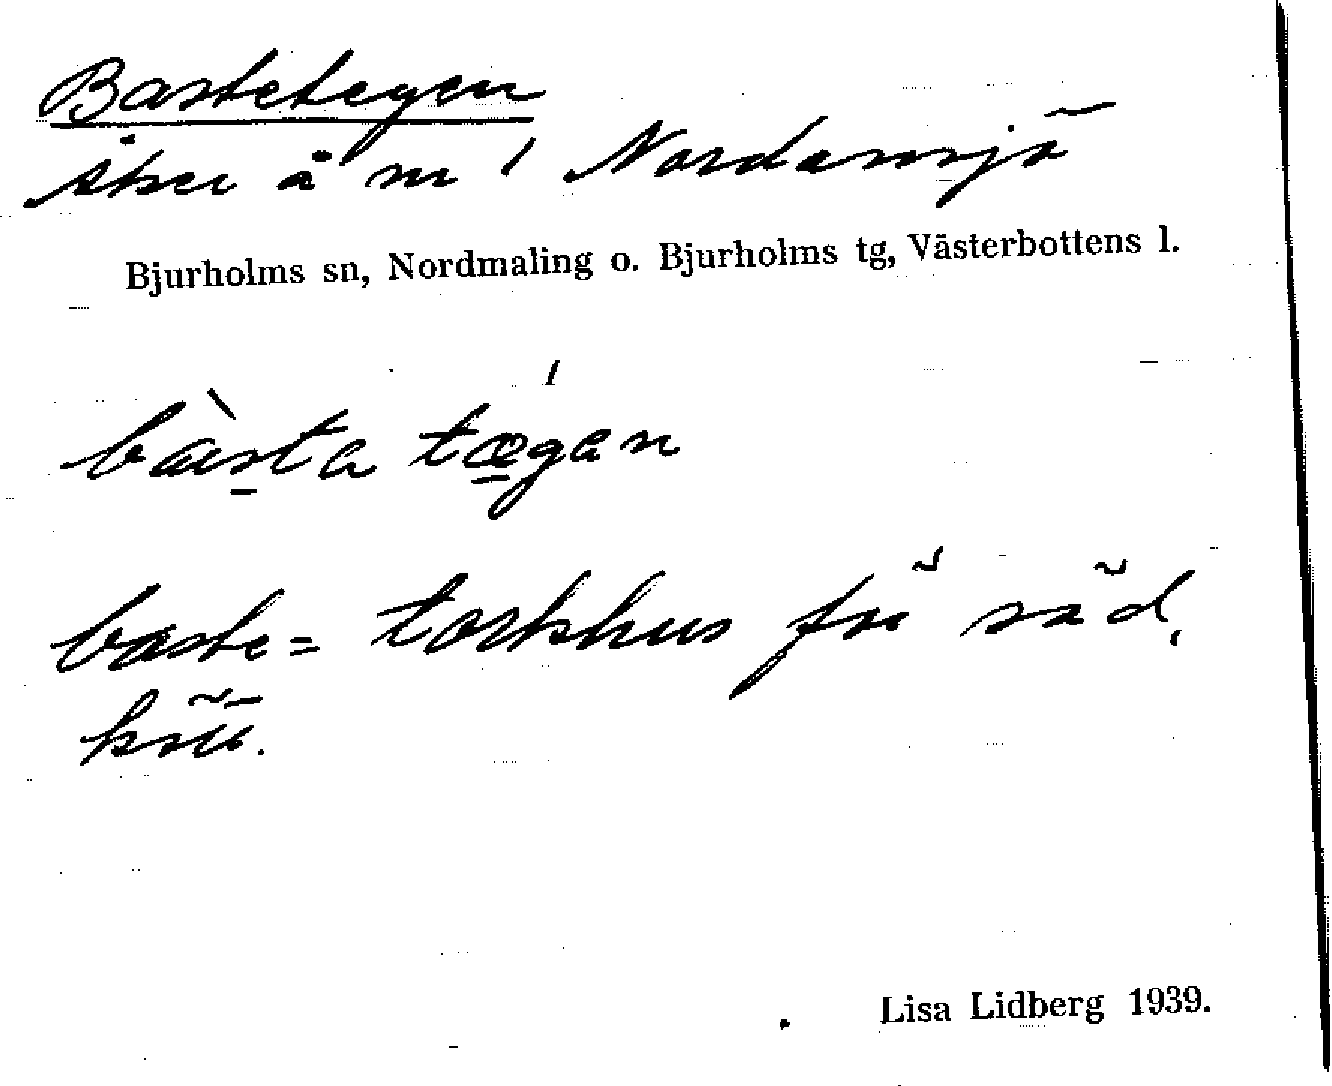 Bastetegen
åker å nr 1 Nordansjö
Bjurholms sn, Nordmaling o. Bjurholms tg, Västerbottens l.
bàsta tǽgan
baste= torkhus för säd,
kött.
Lisa Lidberg 1939.